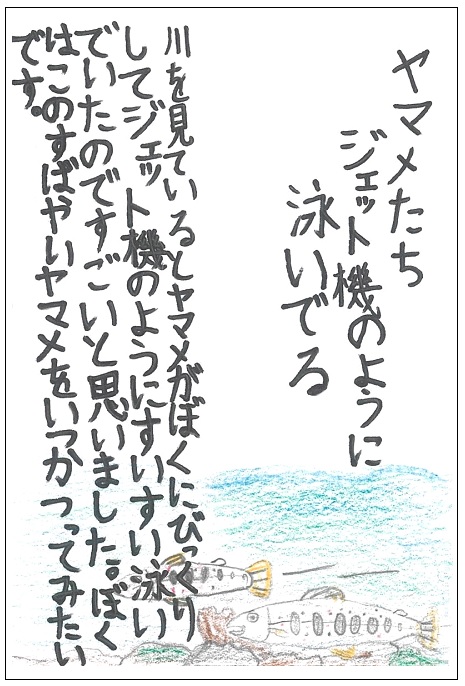 ヤマメたち
ジェット機のように
泳いでる
川を見ているとヤマメがぼくにびっくり
してジェット機のようにすいすい泳い
でいたのですごいと思いました。ぼく
はこのすばやいヤマメをいつかつってみたい
です。